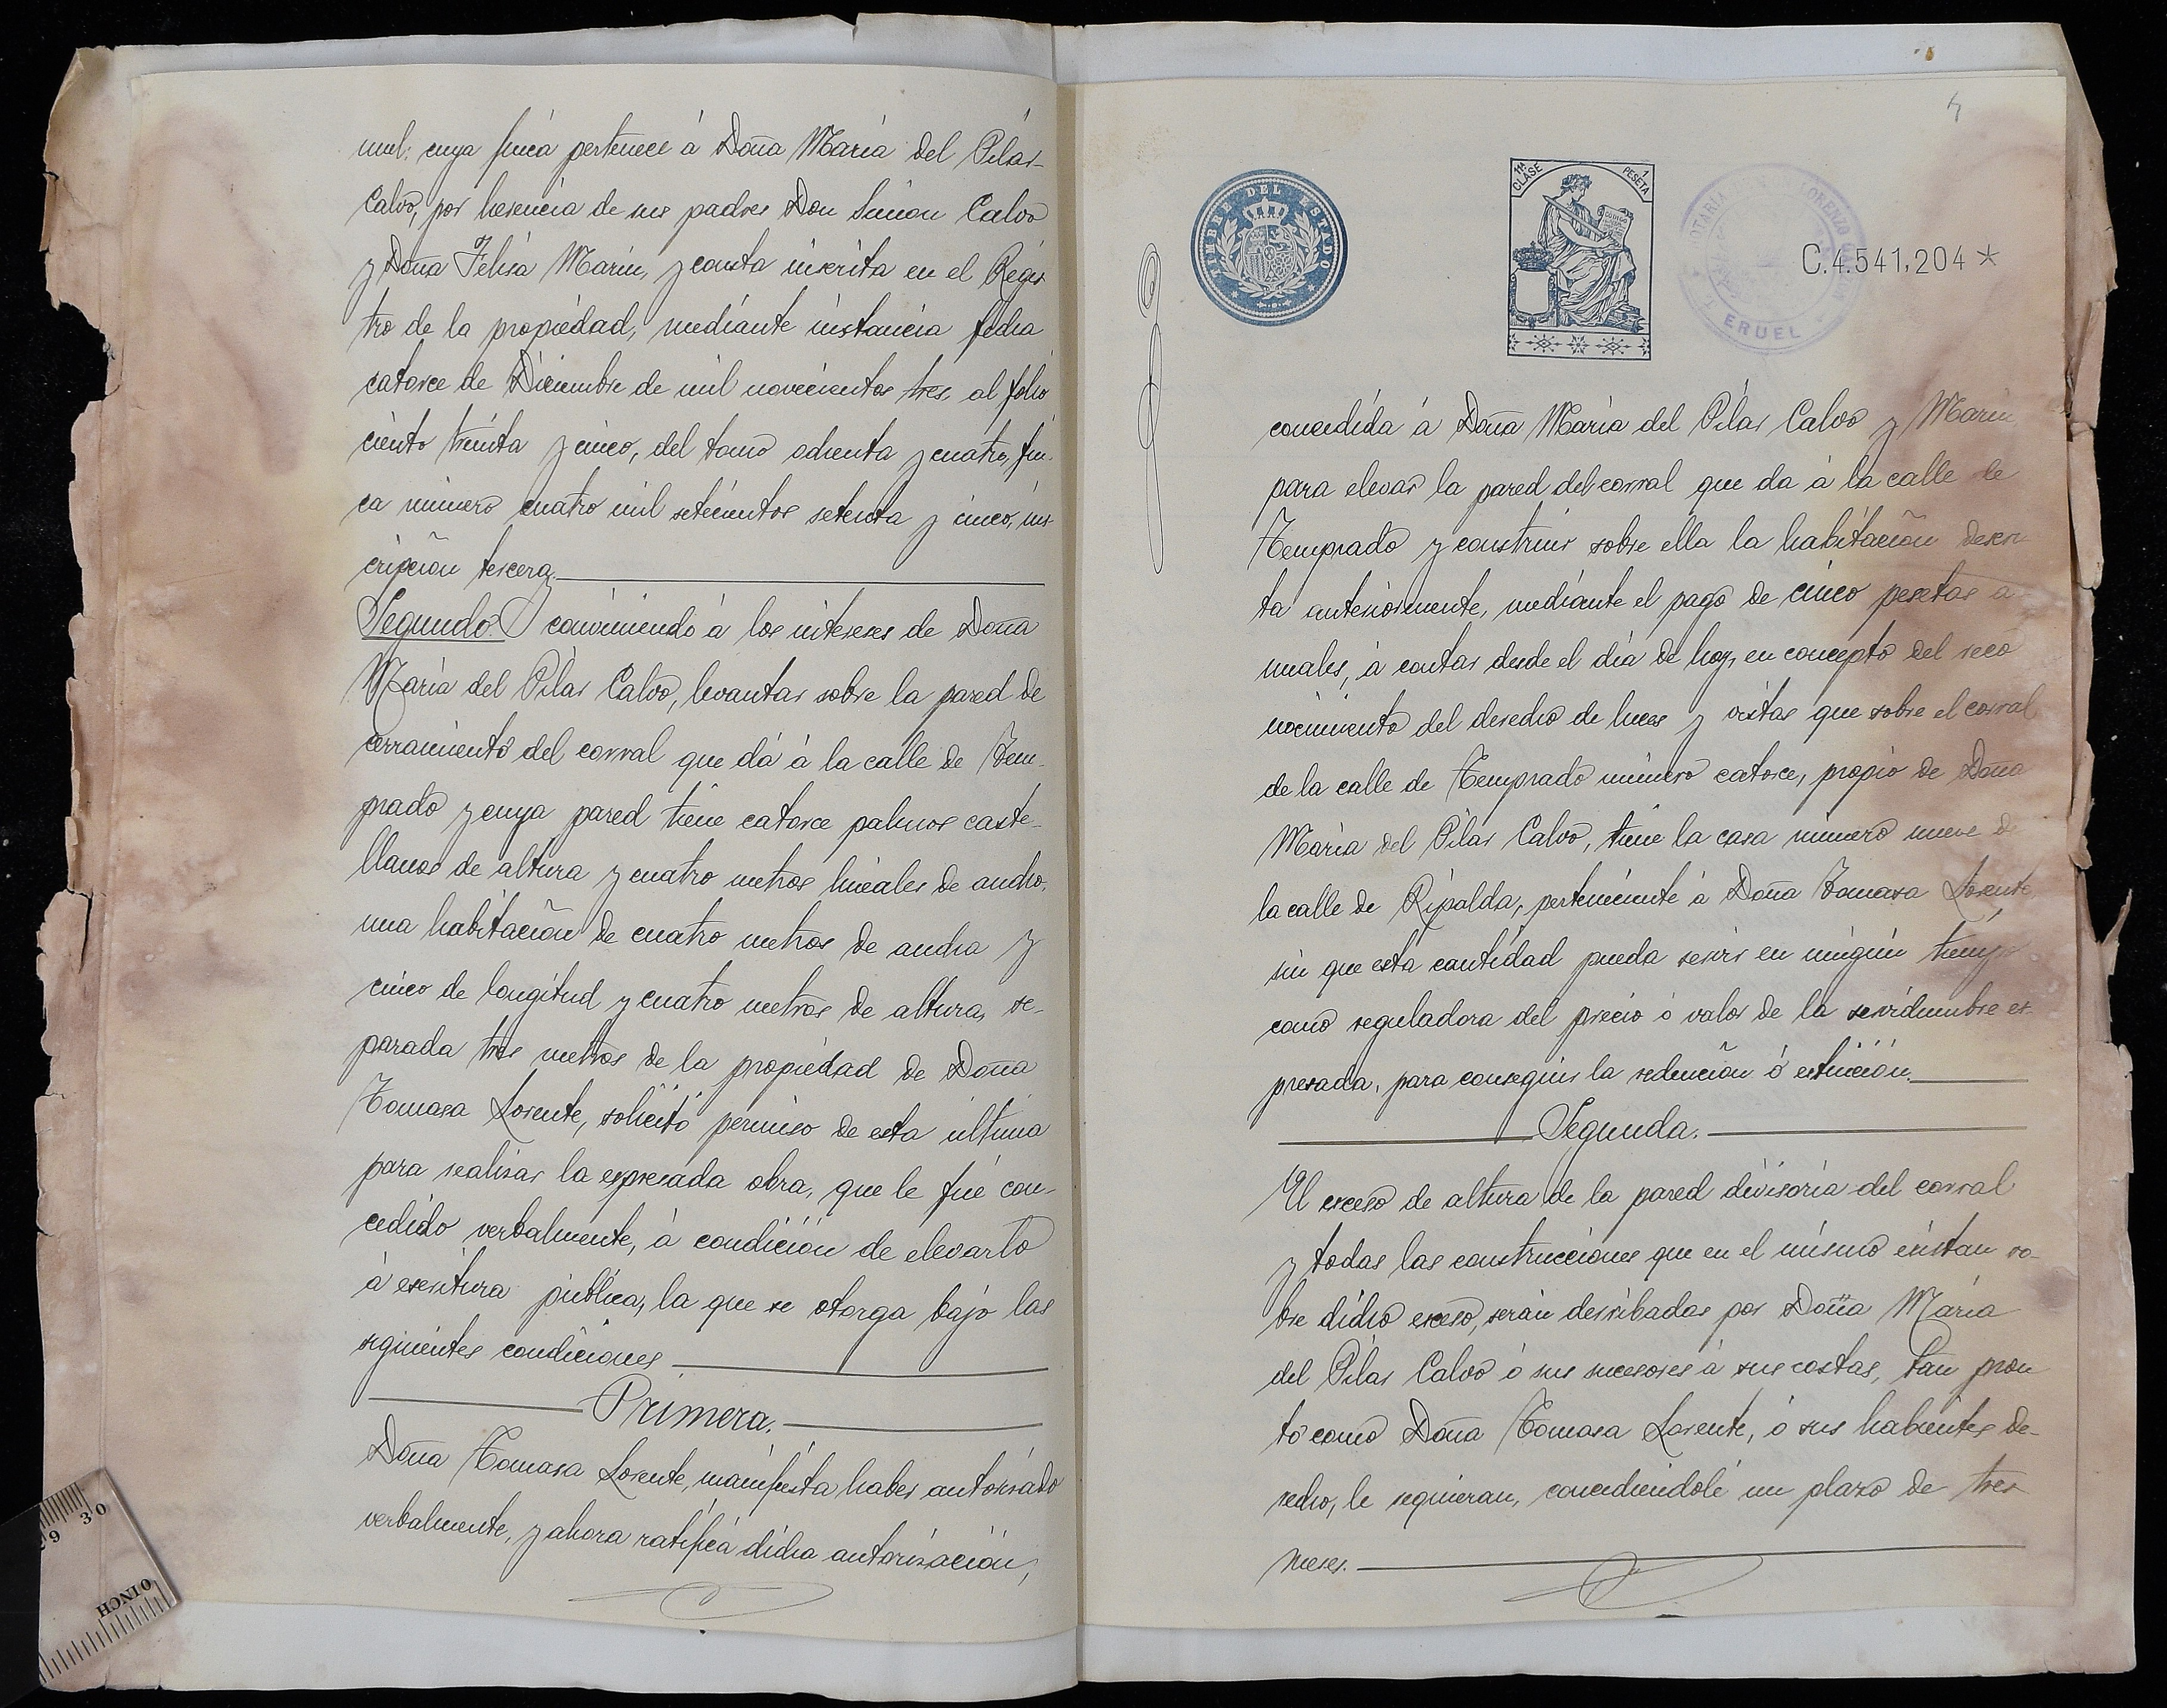 mil: cuya finca pertenece á Doña María del Pilar
Calvo, por herencia de sus padres Don Simon Calvo
y Doña Felisa Marin, y consta inscrita en el Regis-
tro de la propiedad, mediante instancia fecha
catorce de Diciembre de mil novecientos tres, al folio
ciento treinta y cinco, del tomo ochenta y cuatro, fin-
ca número cuatro mil setecientos setenta y cinco, ins-
cripción tercera.
Segundo. conviniendo á los intereses de Doña
María del Pilar Calvo, levantar sobre la pared de
cerramiento del corral que dá á la calle de Tem-
prado y cuya pared tiene catorce palmos caste-
llanos de altura y cuatro metros lineales de ancho,
una habitación de cuatro metros de ancha y
cinco de longitud y cuatro metros de altura, se-
parada tres metros de la propiedad de Doña
Tomasa Lorente, solicitó permiso de esta última
para realizar la expresada obra, que le fué con-
cedido verbalmente, á condición de elevarlo
á escritura pública, la que se otorga bajo las
siguientes condiciones
Primera.
Doña Tomasa Lorente, manifiesta haber autorizado
verbalmente, y ahora ratifica dicha autorización,
TIMBRE DEL ESTADO
11ª CLASE
1 PESETA
NOTARIA LORENZO
TERUEL
C.4.541,204*
concedida á Doña María del Pilar Calvo y Marin
para elevar la pared del corral que da á la calle de
Temprado y construir sobre ella la habitación descri-
ta anteriormente, mediante el pago de cinco pesetas a-
nuales, á contar desde el día de hoy, en concepto del reco
nocimiento del derecho de luces y vistas que sobre el corral
de la calle de Temprado número catorce, propio de Doña
María del Pilar Calvo, tiene la casa número nueve de
la calle de Ripalda, perteneciente á Doña Tomasa Lorente,
sin que esta cantidad pueda servir en ningún tiempo
como reguladora del precio ó valor de la servidumbre ex-
presada, para conseguir la redención ó extinción.
Segunda.
El exceso de altura de la pared divisoria del corral
y todas las construcciones que en el mismo existan so-
bre dicho exceso, serán derribadas por Doña María
del Pilar Calvo ó sus sucesores á sus costas, tan pron
to como Doña Tomasa Lorente, ó sus habientes de-
recho, le requieran, concediéndole un plazo de tres
meses.